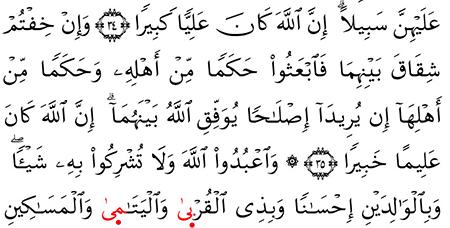 عَلَيْهِنَّ سَبِيلًا ۗ إِنَّ ٱللَّهَ كَانَ عَلِيًّا كَبِيرًا ﴿٣٤﴾ وَإِنْ خِفْتُمْ
شِقَاقَ بَيْنِهِمَا فَٱبْعَثُوا۟ حَكَمًا مِّنْ أَهْلِهِۦ وَحَكَمًا مِّنْ
أَهْلِهَآ إِن يُرِيدَآ إِصْلَٰحًا يُوَفِّقِ ٱللَّهُ بَيْنَهُمَآ ۗ إِنَّ ٱللَّهَ كَانَ
عَلِيمًا خَبِيرًا ﴿٣٥﴾ ۞ وَٱعْبُدُوا۟ ٱللَّهَ وَلَا تُشْرِكُوا۟ بِهِۦ شَيْـًٔا ۖ
وَبِٱلْوَٰلِدَيْنِ إِحْسَٰنًا وَبِذِى ٱلْقُرْبَىٰ وَٱلْيَتَٰمَىٰ وَٱلْمَسَٰكِينِ